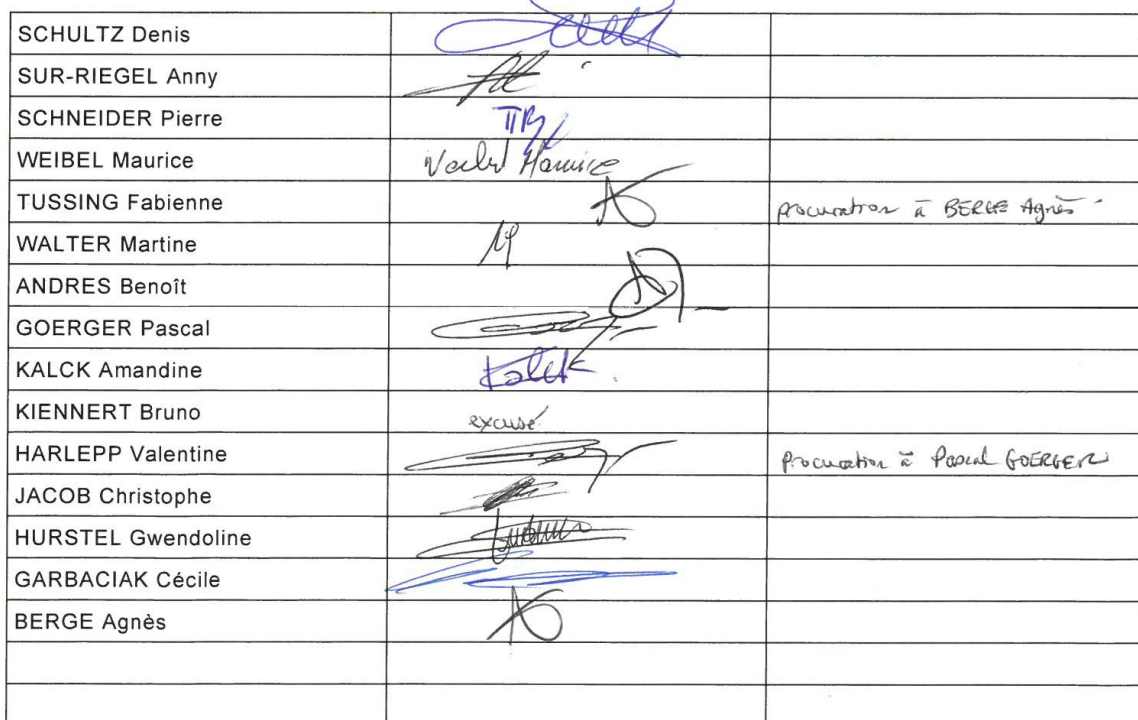 SCHULTZ Denis
SUR-RIEGEL Anny
SCHNEIDER Pierre
WEIBEL Maurice
TUSSING Fabienne procuration à BERGE Agnès
WALTER Martine
ANDRES Benoît
GOERGER Pascal
KALCK Amandine Kalck
KIENNERT Bruno excusé
HARLEPP Valentine procuration à Pascal GOERGER
JACOB Christophe
HURSTEL Gwendoline
GARBACIAK Cécile
BERGE Agnès